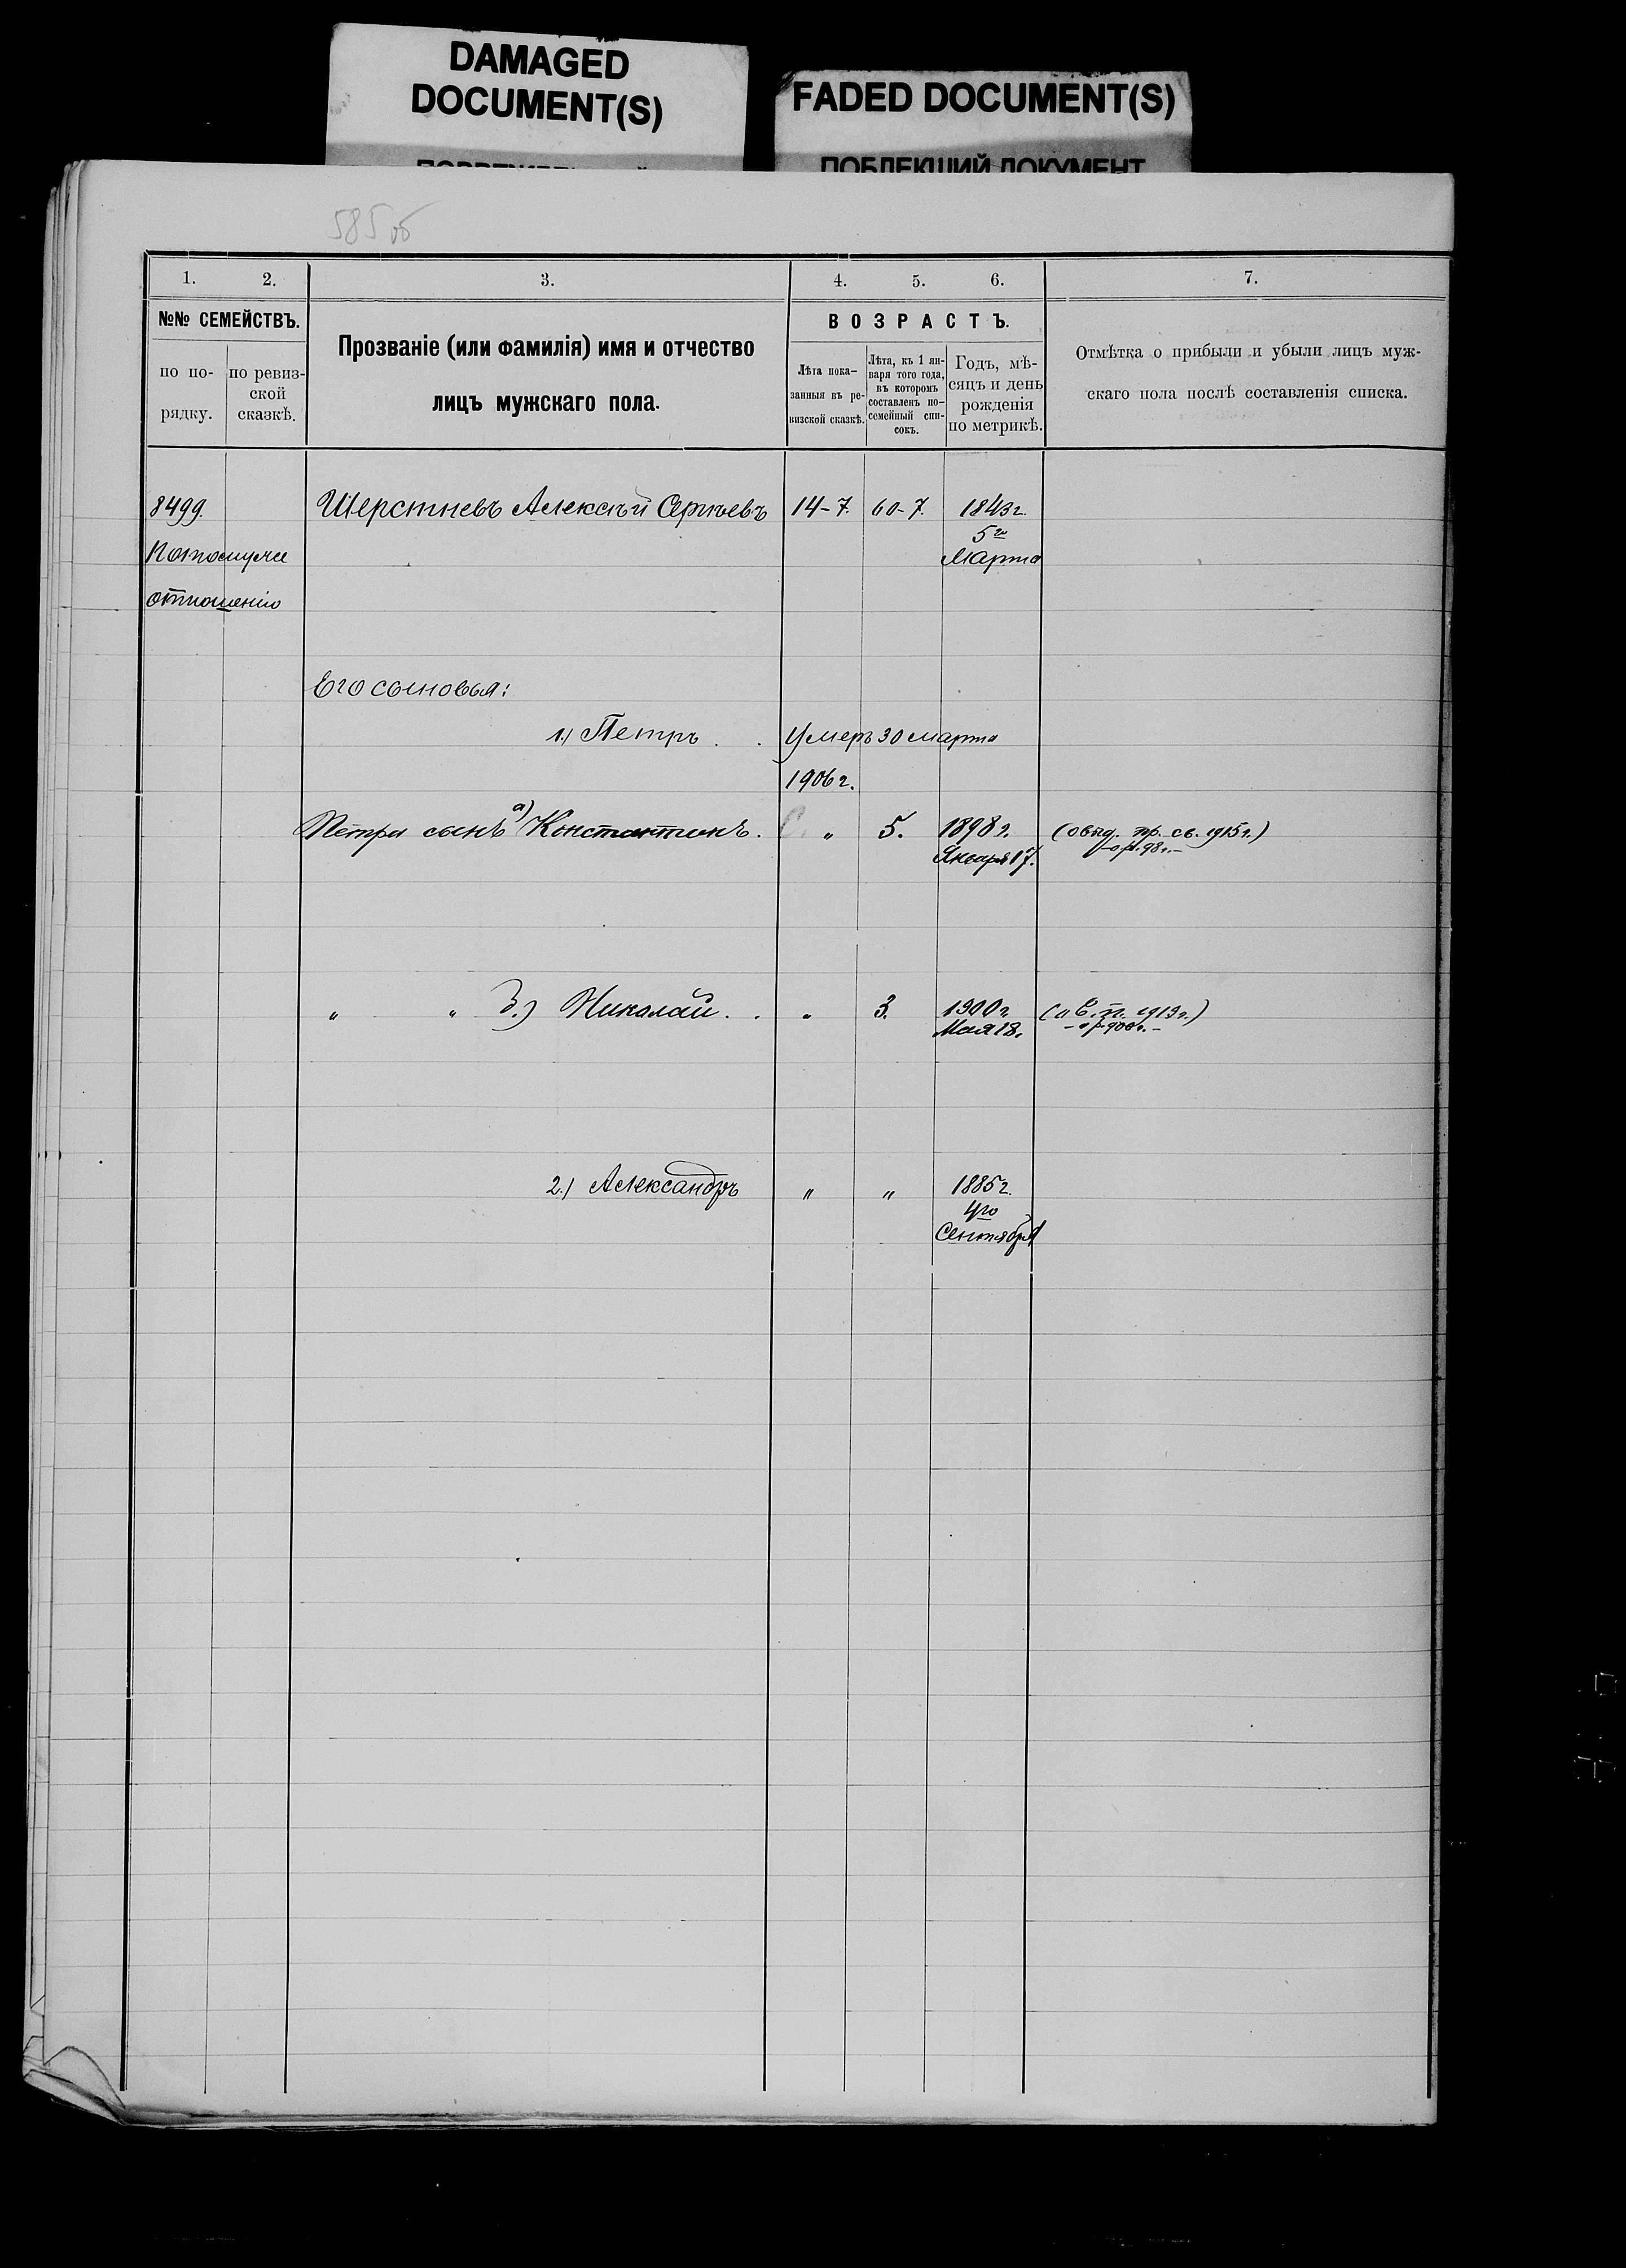 DAMAGED
DOCUMENT(S)
FADED DOCUMENT(S)
ПОБЛЕКШИЙ ДОКУМЕНТ
585 об
1. 2. 3. 4. 5. 6. 7.
№№ СЕМЕЙСТВЪ.
по по-
рядку.
по ревиз-
ской
сказкѣ.
Прозваніе (или фамилія) имя и отчество
лицъ мужскаго пола.
ВОЗРАСТЪ.
Лѣта пока-
занныя въ ре-
визской сказкѣ.
Лѣта, къ 1 ян-
варя того года,
въ которомъ
составленъ по-
семейный спи-
сокъ.
Годъ, мѣ-
сяцъ и день
рожденія
по метрикѣ.
Отмѣтка о прибыли и убыли лицъ муж-
скаго пола послѣ составленія списка.
8499. Шерстневъ Алексѣй Сергѣевъ 14-7. 60-7. 1843 г.
5го
Марта
отношенію
Его сыновья:
1.) Петръ . . Умеръ 30 марта
1906 г.
Петра сынъ а) Константинъ. " 5. 1898 г. 1915 г.)
Января 17.
" " Николай . . " 3. 1900 г. 1913 г.)
Мая 18.
2.) Александръ " " 1885 г.
4го
Сентября